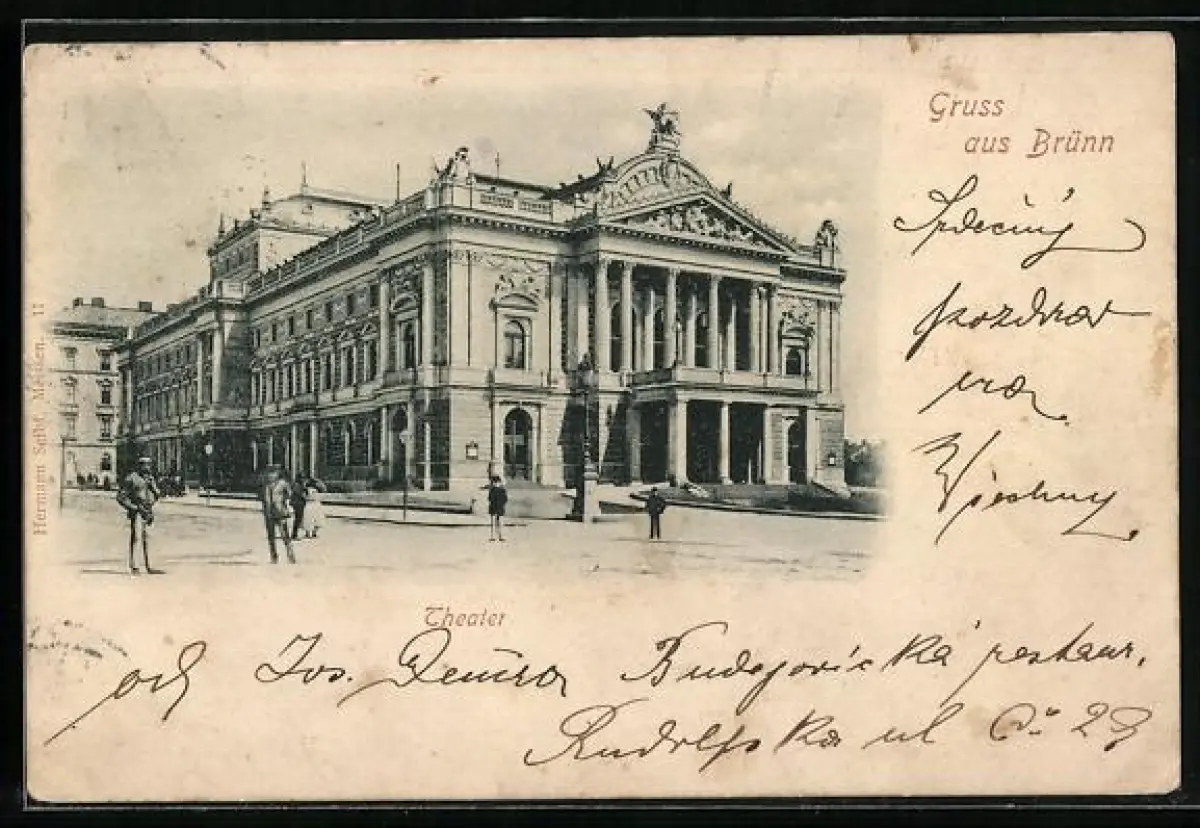 Gruss
aus Brünn
Srdečný
pozdrav
na
Všechny
Theater
od Jos. Budejovická restaur.
Rudolfská ul Čís 28
Hermann Seibt, Meissen. 11